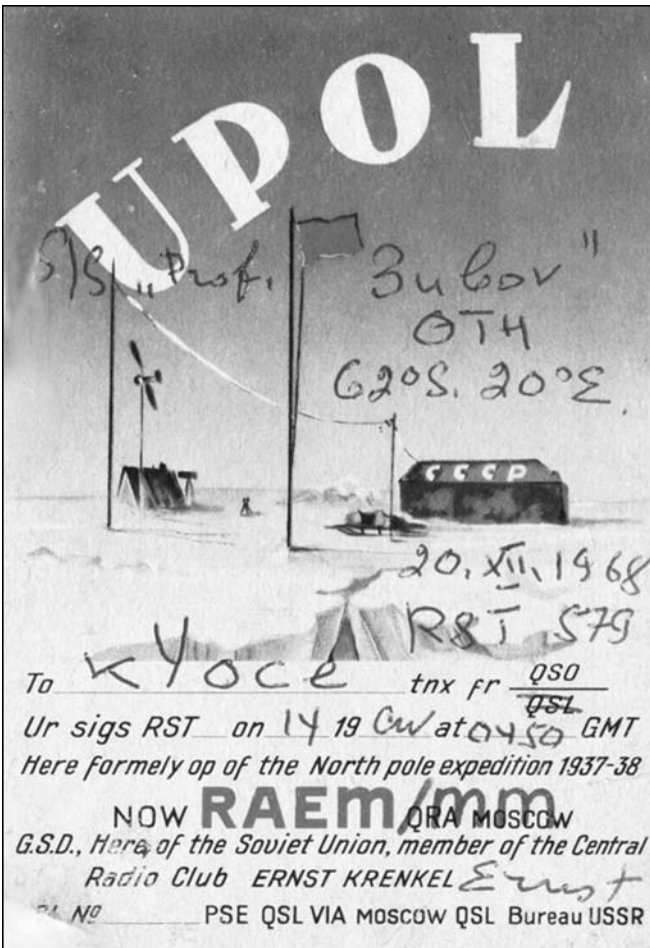 UPOL
S/S „Prof. Zubov"
QTH
62°S. 20°E.
CCCP
20. XII. 1968
RST 579
To K4OCE tnx fr QSO
QSL
Ur sigs RST on 14 19 CW at 0450 GMT
Here formely op of the North pole expedition 1937-38
NOW RAEm/mm QRA MOSCOW
G.S.D., Here, of the Soviet Union, member of the Central
Radio Club ERNST KRENKEL Ernst
№ PSE QSL VIA MOSCOW QSL Bureau USSR